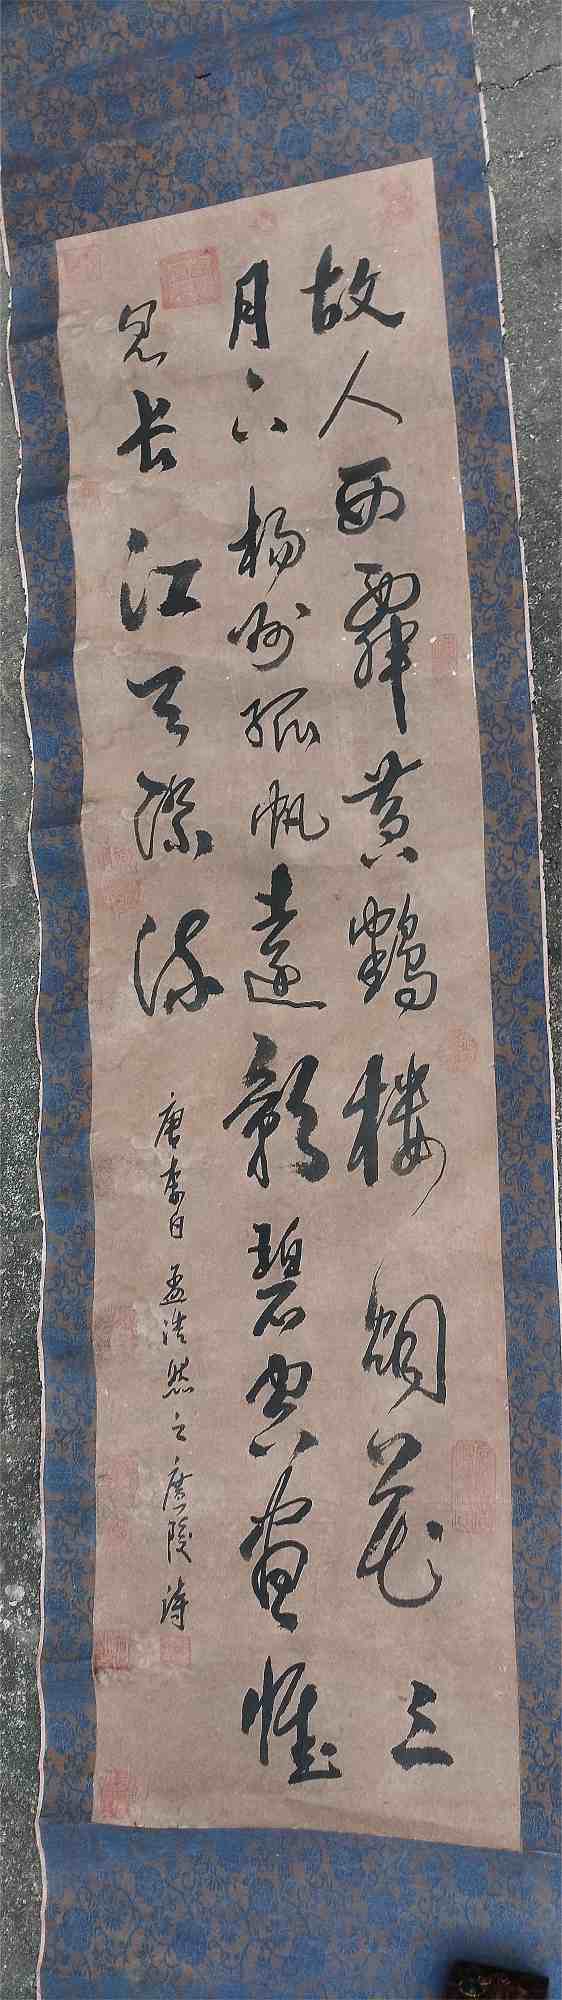 故人西辤黄鶴楼烟花三
月下杨州孤帆遠影碧空盡惟
見长江天際流
唐李白孟浩然之廣陵詩